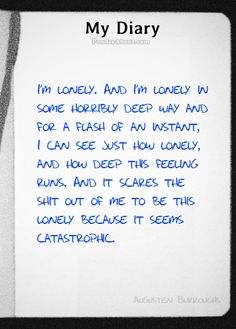 My Diary
PonderAbout.com
I'm lonely. And I'm lonely in
some horribly deep way and
for a flash of an instant,
I can see just how lonely,
and how deep this feeling
runs. And it scares the
shit out of me to be this
lonely because it seems
catastrophic.
Augusten Burroughs